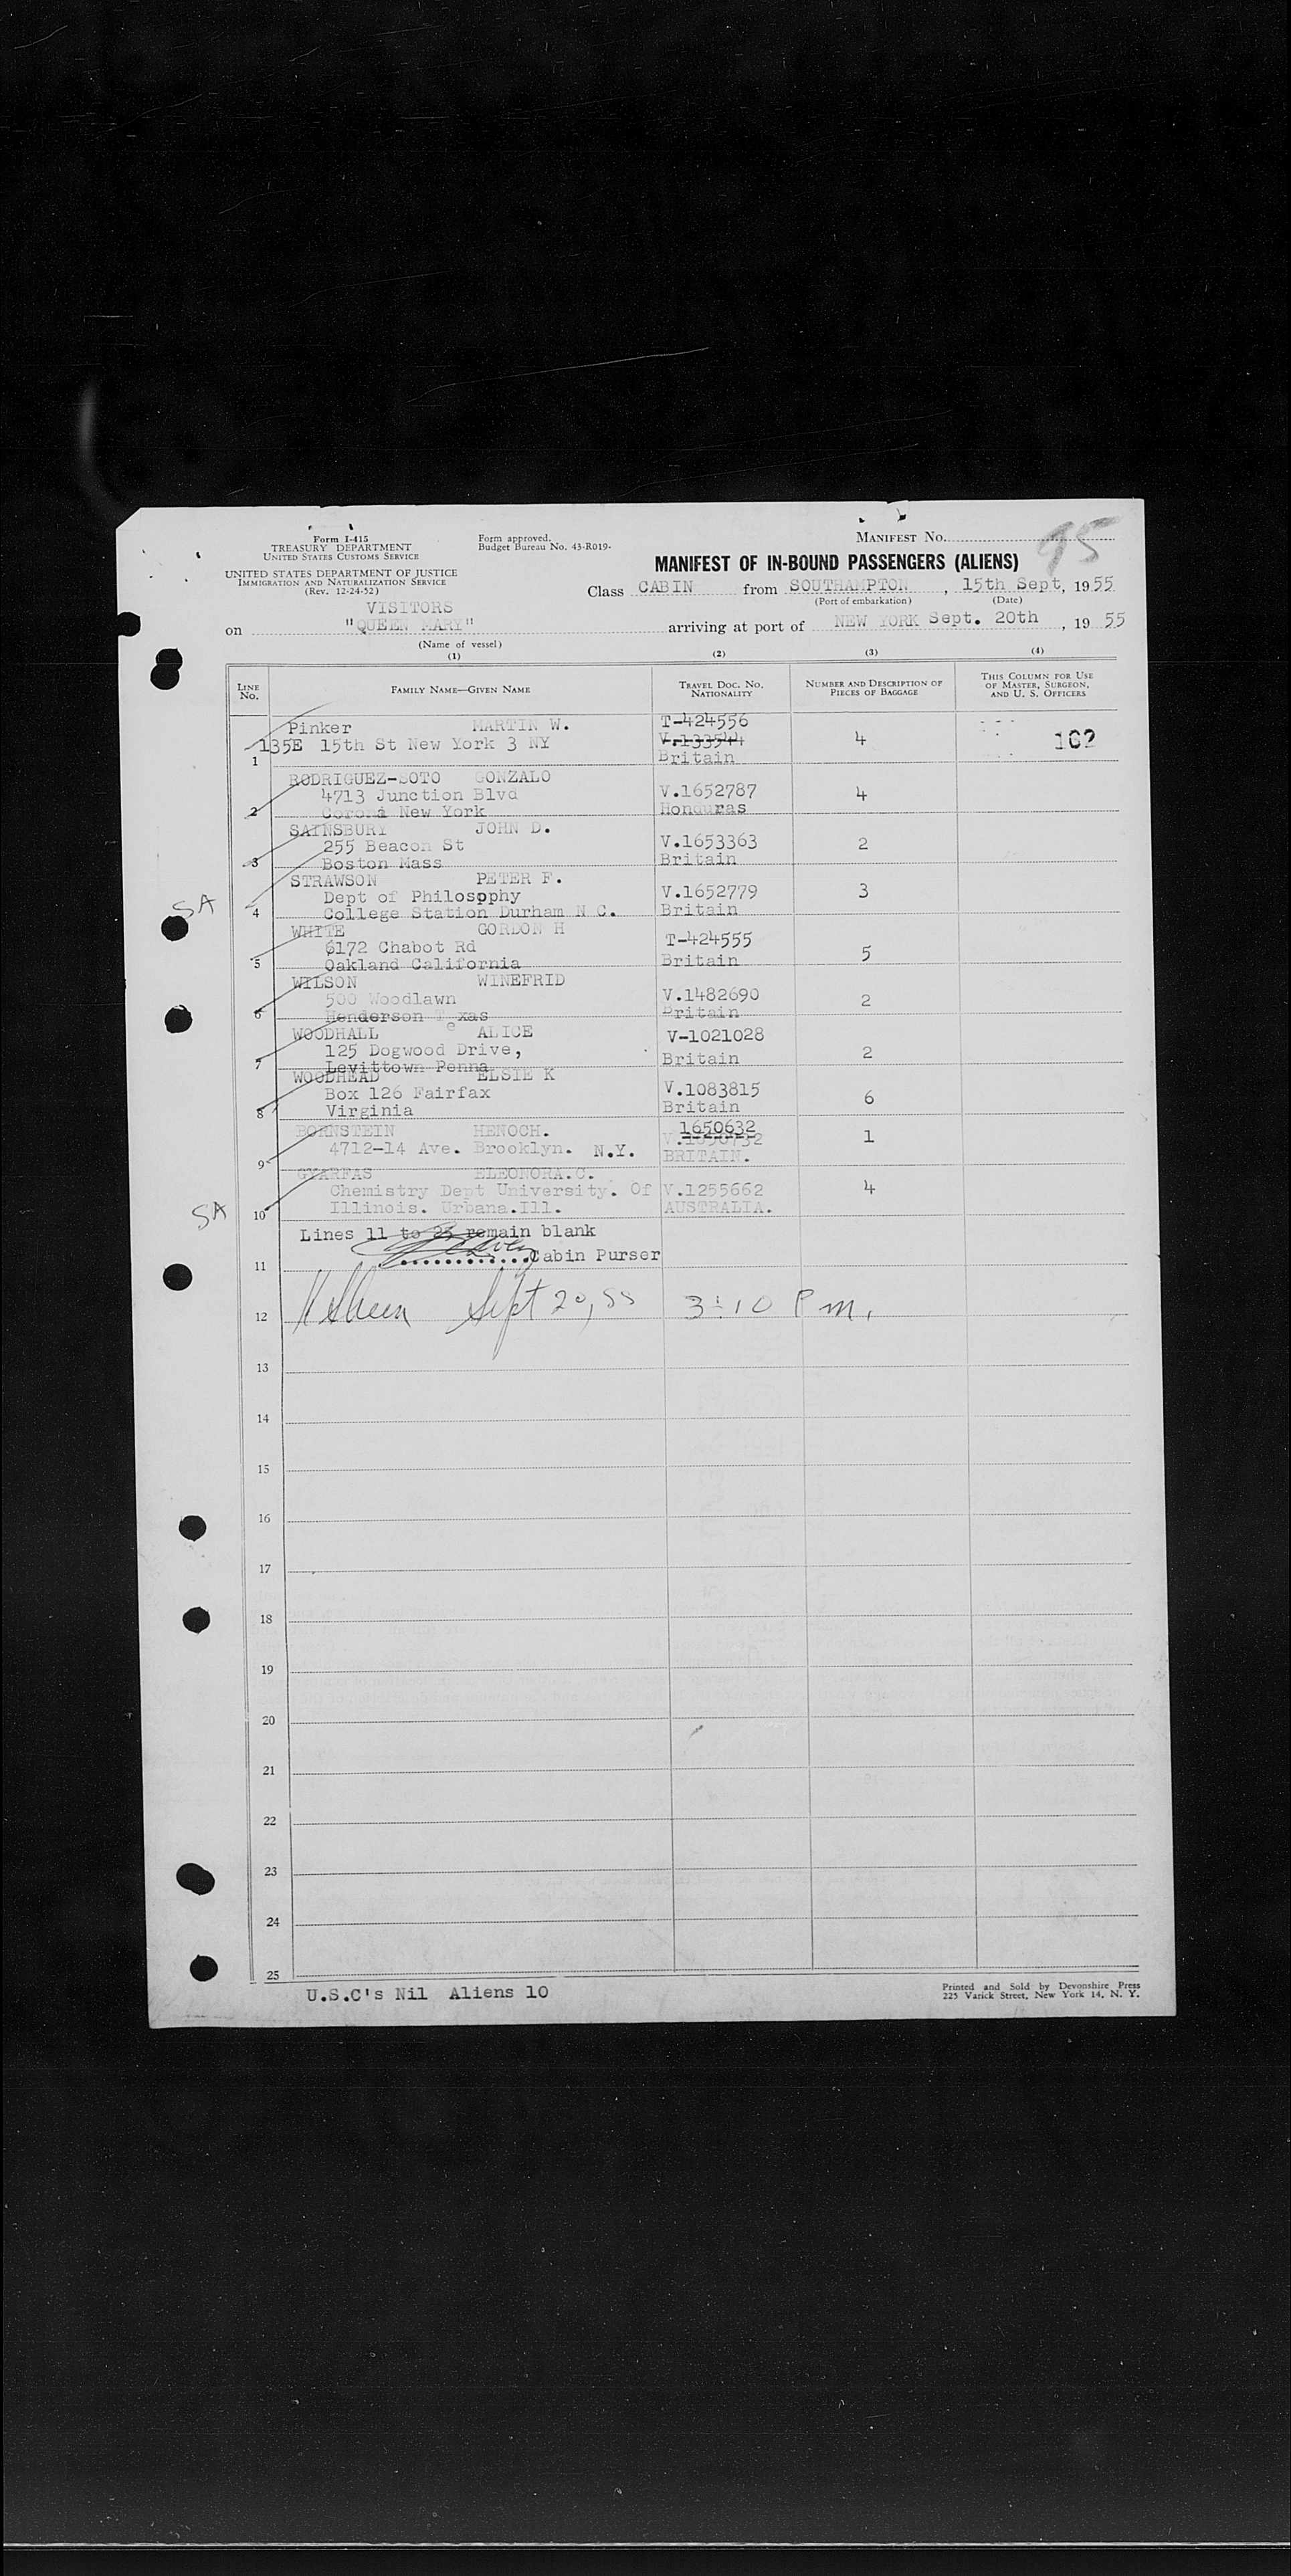 Form I-415
TREASURY DEPARTMENT
UNITED STATES CUSTOMS SERVICE
UNITED STATES DEPARTMENT OF JUSTICE
IMMIGRATION AND NATURALIZATION SERVICE
(Rev. 12-24-52)
Form approved.
Budget Bureau No. 43-R019-
MANIFEST No.
95
MANIFEST OF IN-BOUND PASSENGERS (ALIENS)
Class CABIN from SOUTHAMPTON, 15th Sept, 1955
(Port of embarkation) (Date)
VISITORS
on "QUEEN MARY" arriving at port of NEW YORK Sept. 20th, 1955
(Name of vessel)
(1) (2) (3) (4)
LINE No. FAMILY NAME—GIVEN NAME TRAVEL DOC. No. NATIONALITY NUMBER AND DESCRIPTION OF PIECES OF BAGGAGE THIS COLUMN FOR USE OF MASTER, SURGEON, AND U. S. OFFICERS
Pinker MARTIN W. T-424556
135E 15th St New York 3 NY V.133544 4 162
1 Britain
RODRIGUEZ-SOTO GONZALO
4713 Junction Blvd V.1652787 4
2 Corona New York Honduras
SAINSBURY JOHN D.
255 Beacon St V.1653363 2
3 Boston Mass Britain
STRAWSON PETER F.
SA Dept of Philosophy V.1652779 3
4 College Station Durham N C. Britain
WHITE GORDON H
6172 Chabot Rd T-424555
5 Oakland California Britain 5
WILSON WINEFRID
500 Woodlawn V.1482690 2
6 Henderson Texas Britain
WOODHALL ALICE V-1021028
125 Dogwood Drive,
7 Levittown Penna Britain 2
WOODHEAD ELSIE K
Box 126 Fairfax V.1083815
8 Virginia Britain 6
BORNSTEIN HENOCH. 1650632
4712-14 Ave. Brooklyn. N.Y. 1
9 BRITAIN.
GYARFAS ELEONORA.C.
SA Chemistry Dept University. Of V.1255662 4
10 Illinois. Urbana.Ill. AUSTRALIA.
Lines 11 to 25 remain blank
11 Cabin Purser
12 Sept 20, 55 3:10 P m.
13
14
15
16
17
18
19
20
21
22
23
24
25
U.S.C's Nil Aliens 10
Printed and Sold by Devonshire Press
225 Varick Street, New York 14, N. Y.